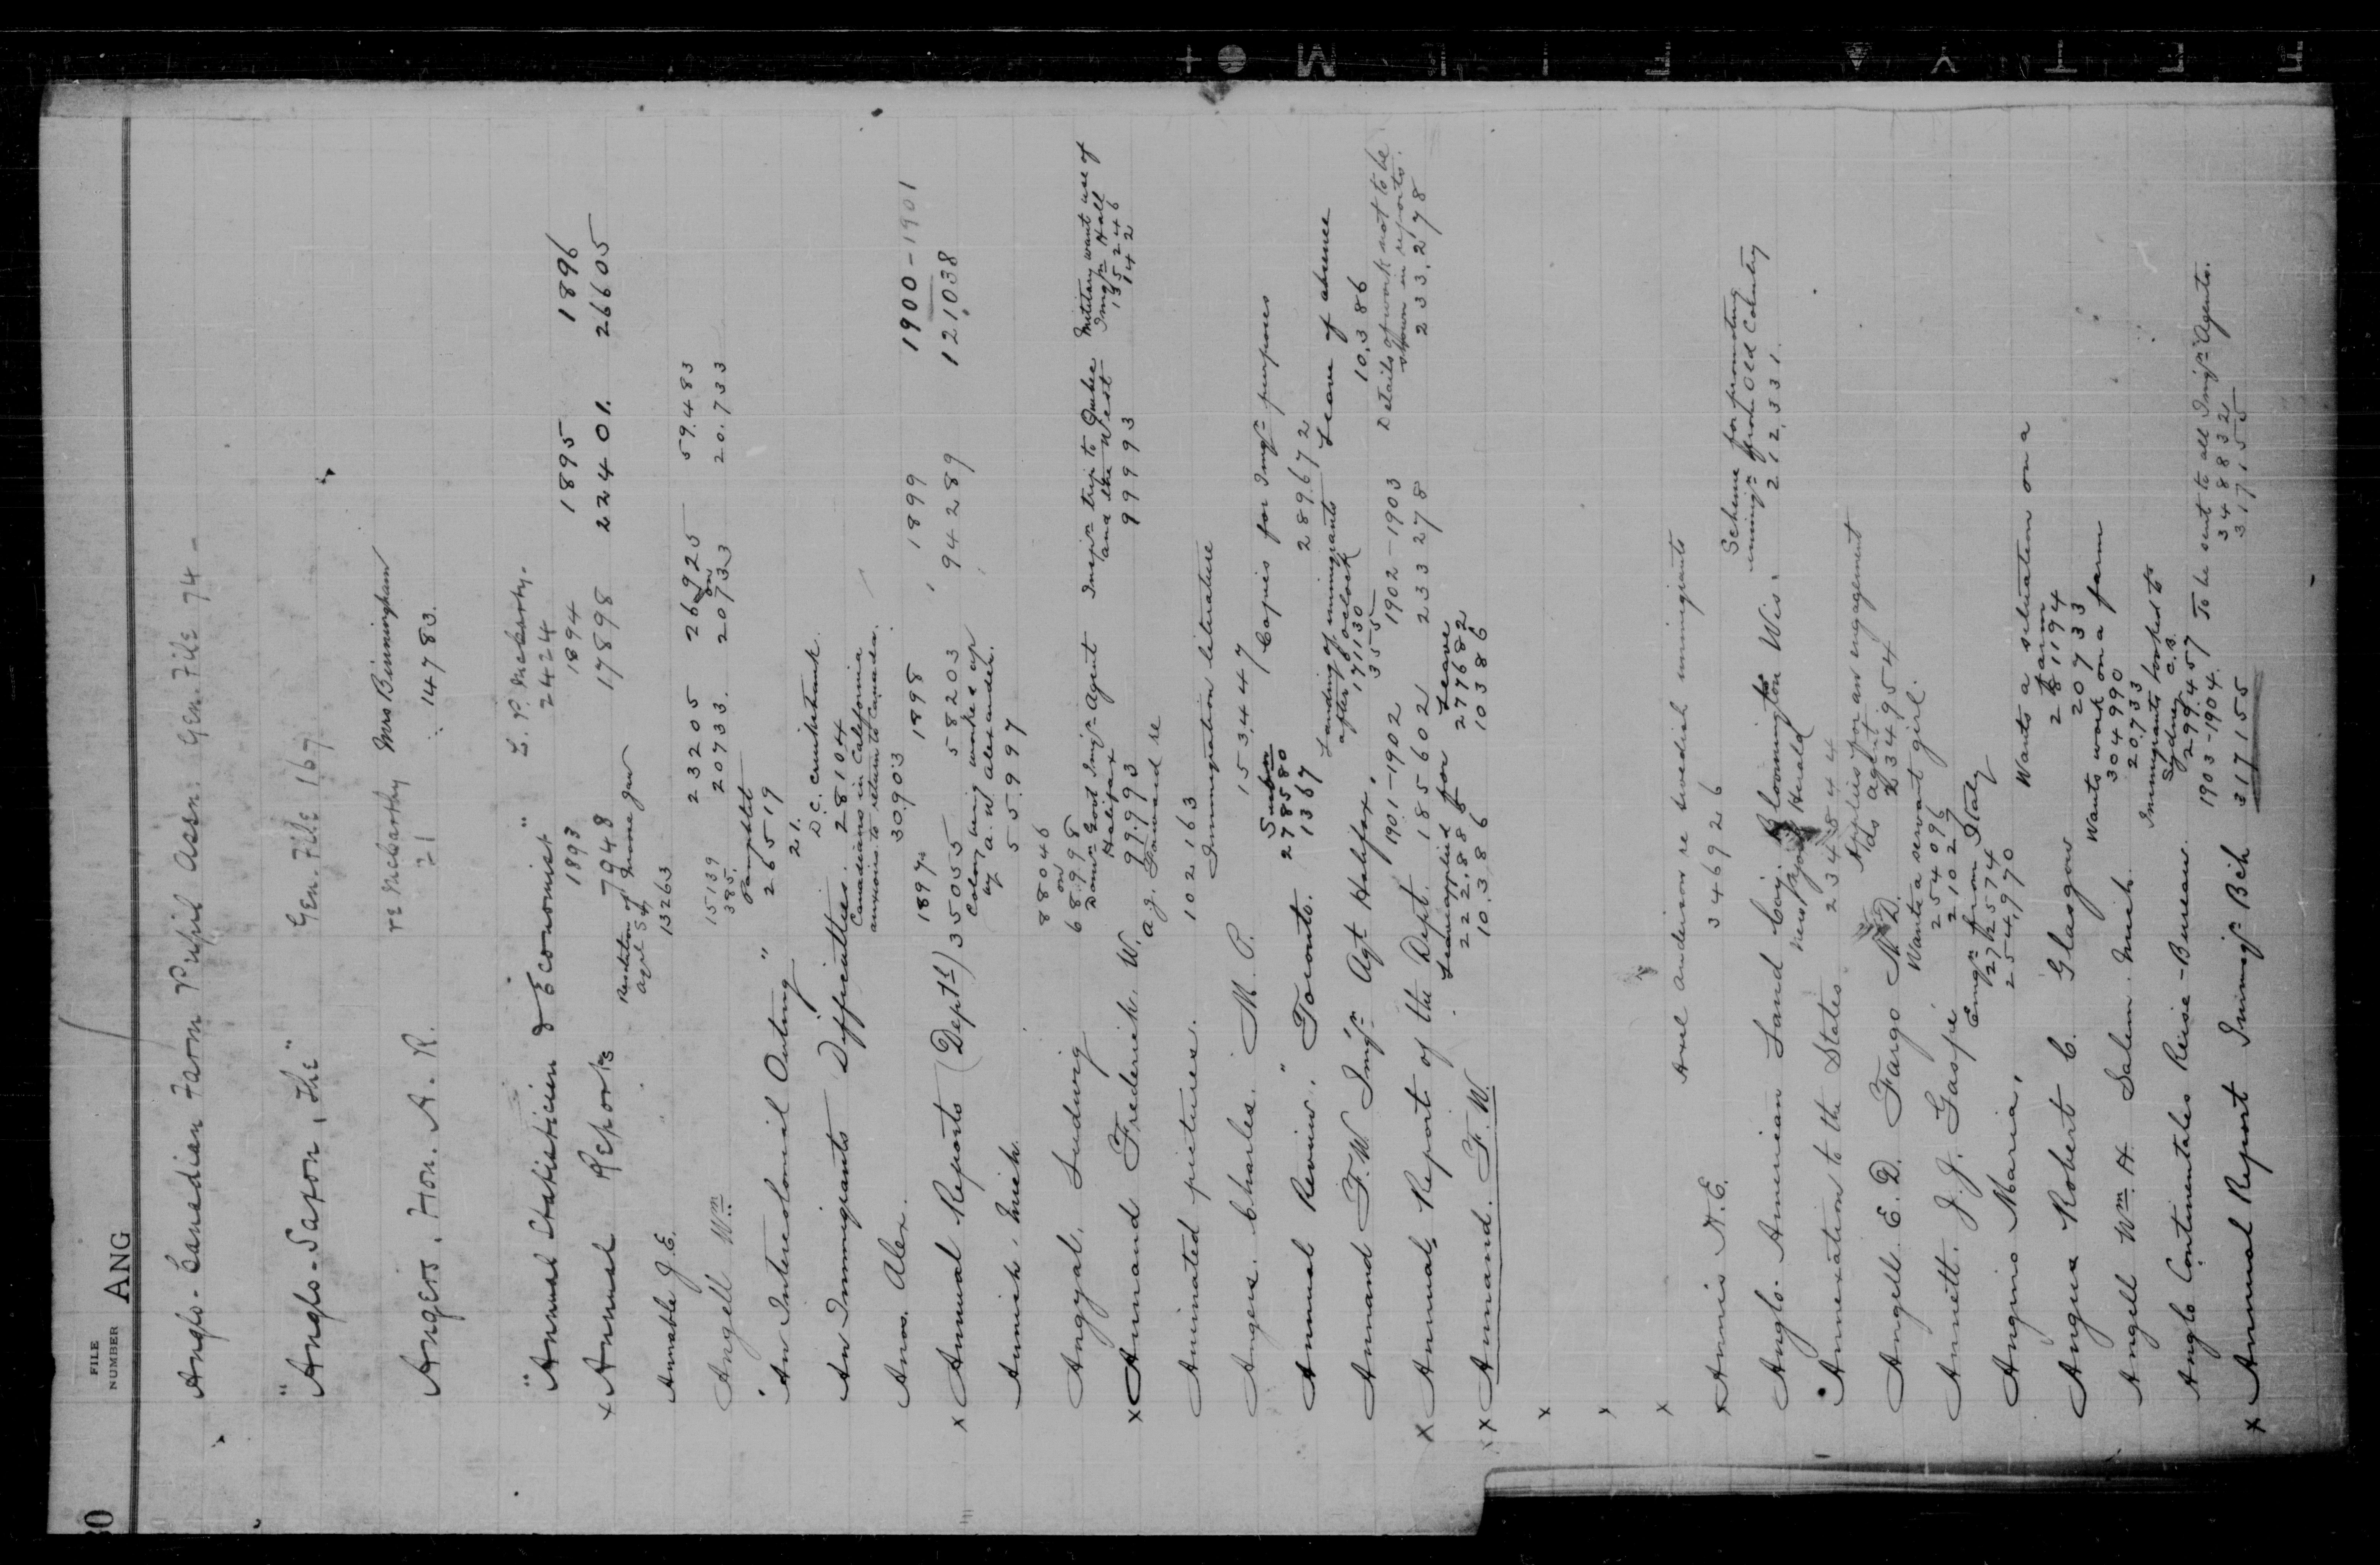 30
FILE
NUMBER
ANG
Anglo-Canadian Farm Pupil Assn. Gen. File 74 -
"Anglo-Saxon, The" Gen. File 167
Angers, Hon. A. R. re McCarthy 21 Mrs Birmingham 14783.
"Annual Statistician & Economist" L. P. McCarthy. 2424
1893 1894 1895 1896
x Annual Reports 7948 17898 22401. 26605
Annable J. E. 13263
Angell Wm 15139 385. 23205 20733. 26925 on 20733 59.483 20.733
"An Intercolonial Outing" Pamphlet 26519
An Immigrants Difficulties. 21. D. C. Cruikshank. 28104
Anos. Alex. Canadians in California anxious to return to Canada. 30903
1897 1898 1899 1900-1901
x Annual Reports (Deptl) 35055 58203 94289 121038
Annish, Mich. Colony being worked up by A. W. Alexander. 55997
Angyal, Ludwig 88046 on 68998
x Annand Frederick W. Domn Govt Imgn Agent Halifax 99993 Imgn trip to Quebec and the West 99993 Military want use of Imgn Hall 135246 142
Animated pictures. 102163
Angers. Charles. M. P. Immigration literature 153447
Annual Review. Toronto. 278580 1367 Copies for Imgn purposes 289672
Annand F. W. Imgn Agt Halifax. Landing of immigrants after 8 oclock 171130 355 Leave of absence 10.386
1901-1902 1902-1903 Details of work not to be shown in reports.
x Annual Report of the Dept. 185602 233278 233.278
x Annand. F. W. Leave applied for 222.885 10.386 Leave 277682 10386
x
x
x
x Annis A. E. Axel Anderson re Swedish immigrants 346926
Anglo-American Land Coy. Bloomington Wis. Scheme for promoting immign from Old Country 212.331.
Annexation to the States New York Herald 234844
Angell E. D. Fargo N. D. Applies for an engagement as agent 234954
Annett. J. J. Gaspé Wants a servant girl. 254096 21027
Angino Maria, Emgn from Italy 272574 254,970
Angus Robert C. Glasgow Wants a situation on a farm 281194 20733
Angell Wm. H. Salem. Mich. Wants work on a farm 304990 20,733
Anglo Continentales Reise-Bureau. Immigrants booked to Sydney C.B. 299.457 To be sent to all Imgn Agents. 348832
1903-1904.
x Annual Report Immign Bch 317155 317155